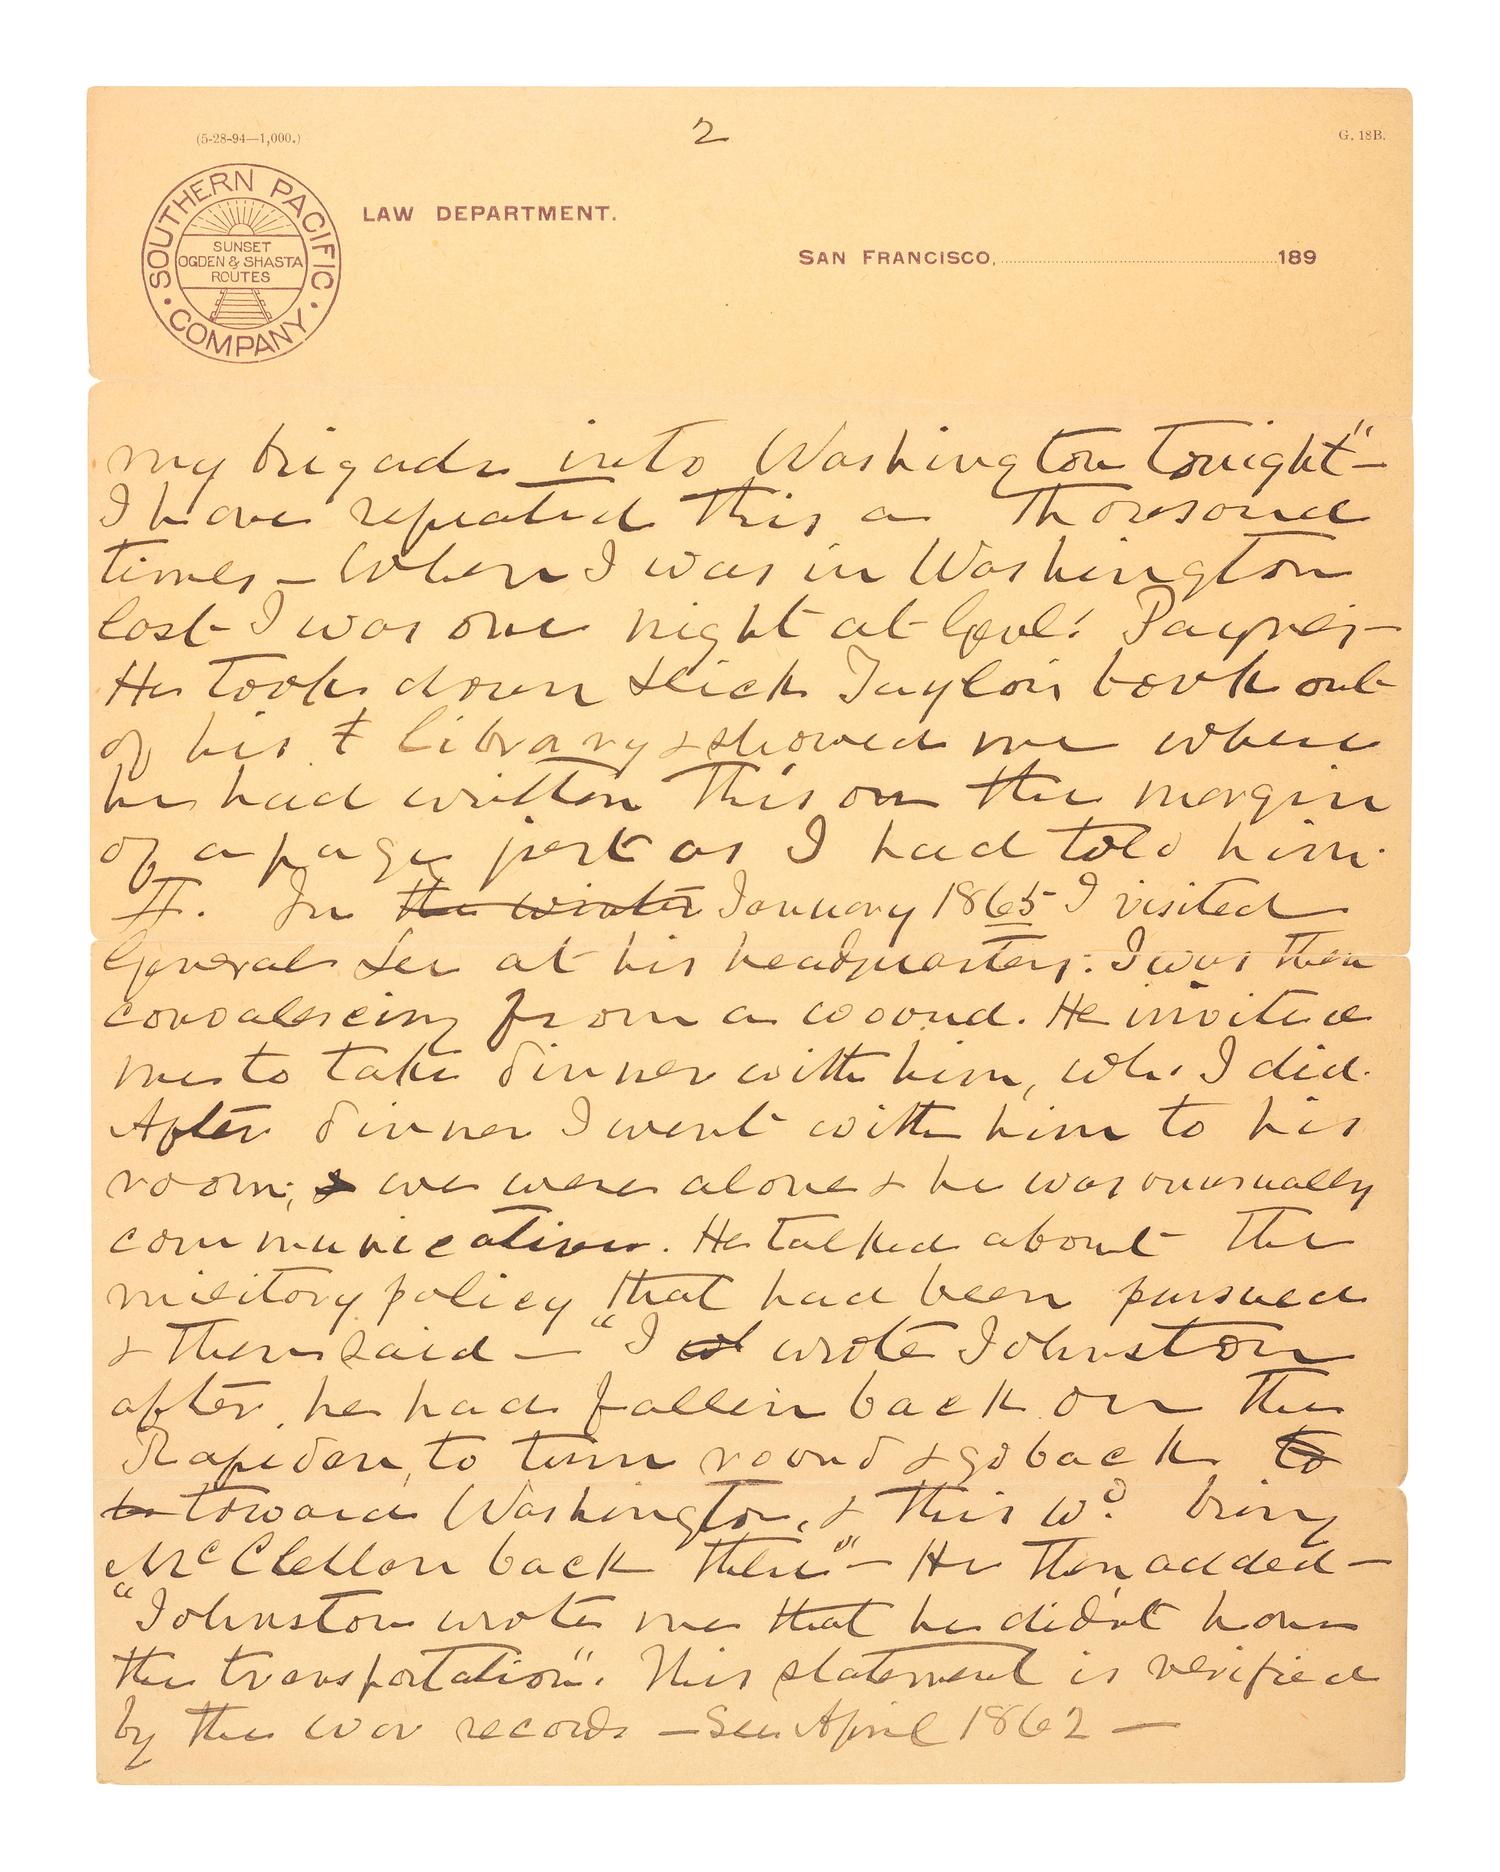 (5-28-94—1,000.)
2
G. 18B.
SOUTHERN PACIFIC COMPANY
SUNSET
OGDEN & SHASTA
ROUTES
LAW DEPARTMENT.
SAN FRANCISCO, 189
my brigade into Washington tonight"—
I have repeated this a thousand
times — When I was in Washington
last I was one night at Genl: Paynes—
He took down Dick Taylor's book out
of his library & showed me where
he had written this on the margin
of a page just as I had told him.
II. In the winter January 1865 I visited
General Lee at his headquarters. I was then
convalescing from a wound. He invited
me to take dinner with him, wh. I did.
After dinner I went with him to his
room, & we were alone & he was unusually
communicative. He talked about the
military policy that had been pursued
& then said — "I wrote Johnston
after he had fallen back on the
Rapidan, to turn round & go back to
toward Washington, & this wd. bring
McClellan back there"— He then added—
"Johnston wrote me that he did'nt have
the transportation". This statement is verified
by the war records — See April 1862 —